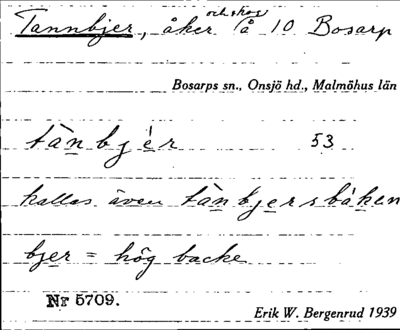 Tannbjer, åker och skog å 10 Bosarp
Bosarps sn., Onsjö hd., Malmöhus län
tànbjér 53
kallas även tànbjersbàken
bjer = hög backe
Nr 5709.
Erik W. Bergenrud 1939